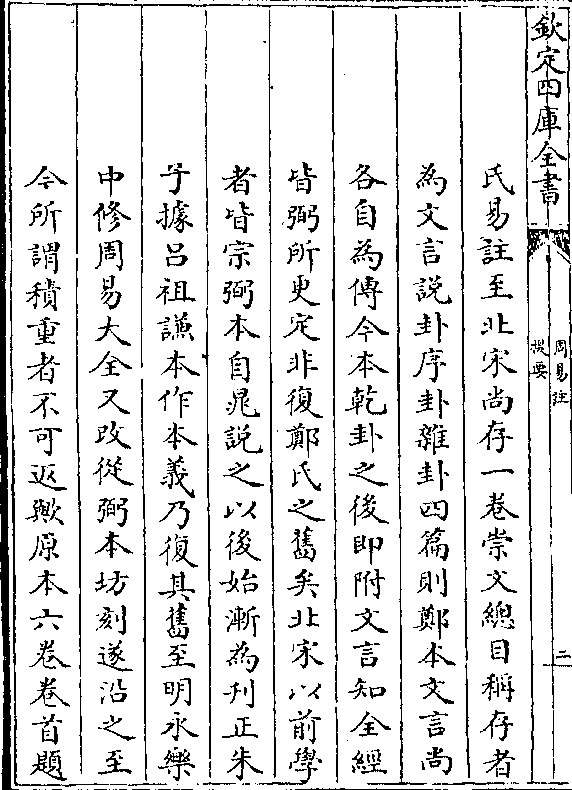 欽定四庫全書
周易註
提要
二
氏易註至北宋尚存一卷崇文總目稱存者
為文言說卦序卦雜卦四篇則鄭本文言尚
各自為傳今本乾卦之後即附文言知全經
皆弼所更定非復鄭氏之舊矣北宋以前學
者皆宗弼本自晁說之以後始漸為刋正朱
子據呂祖謙本作本義乃復其舊至明永樂
中修周易大全又改從弼本坊刻遂沿之至
今所謂積重者不可返歟原本六卷卷首題